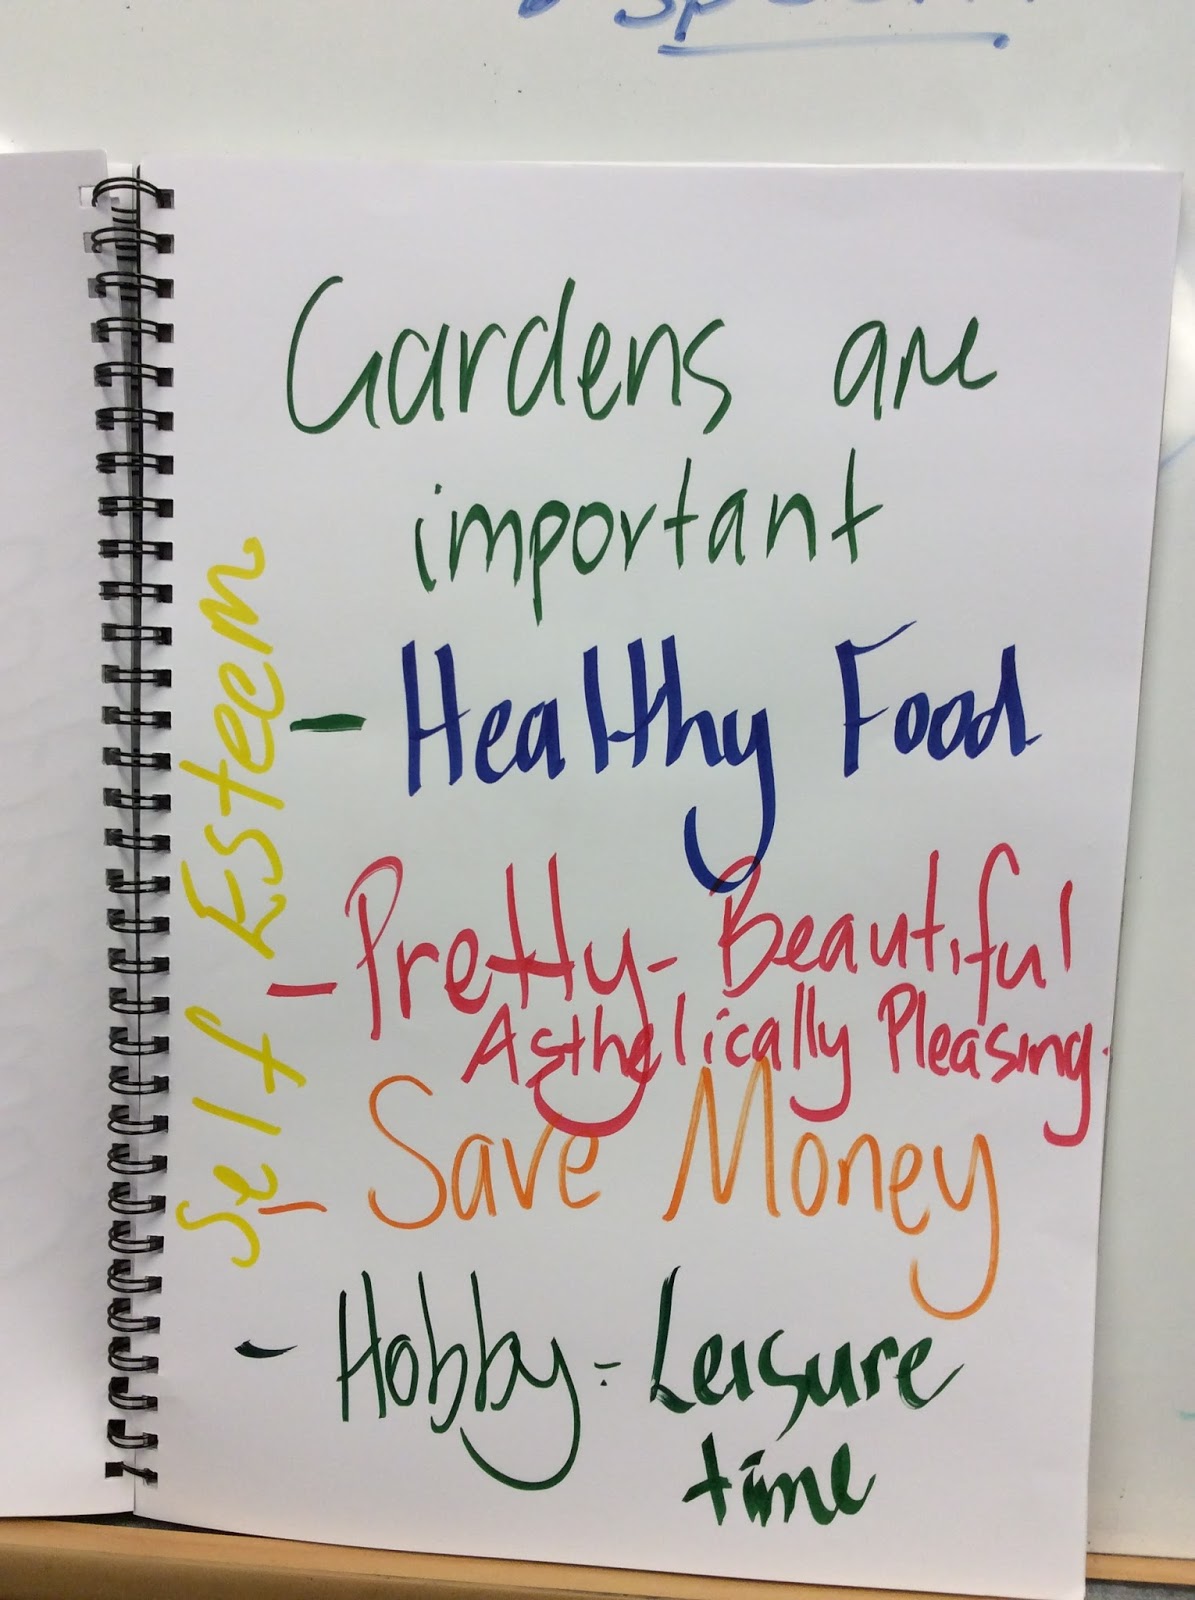 Gardens are
important
- Healthy Food
- Pretty - Beautiful
Asthelically Pleasing.
- Save Money
- Hobby - Leisure
time
Self Esteem